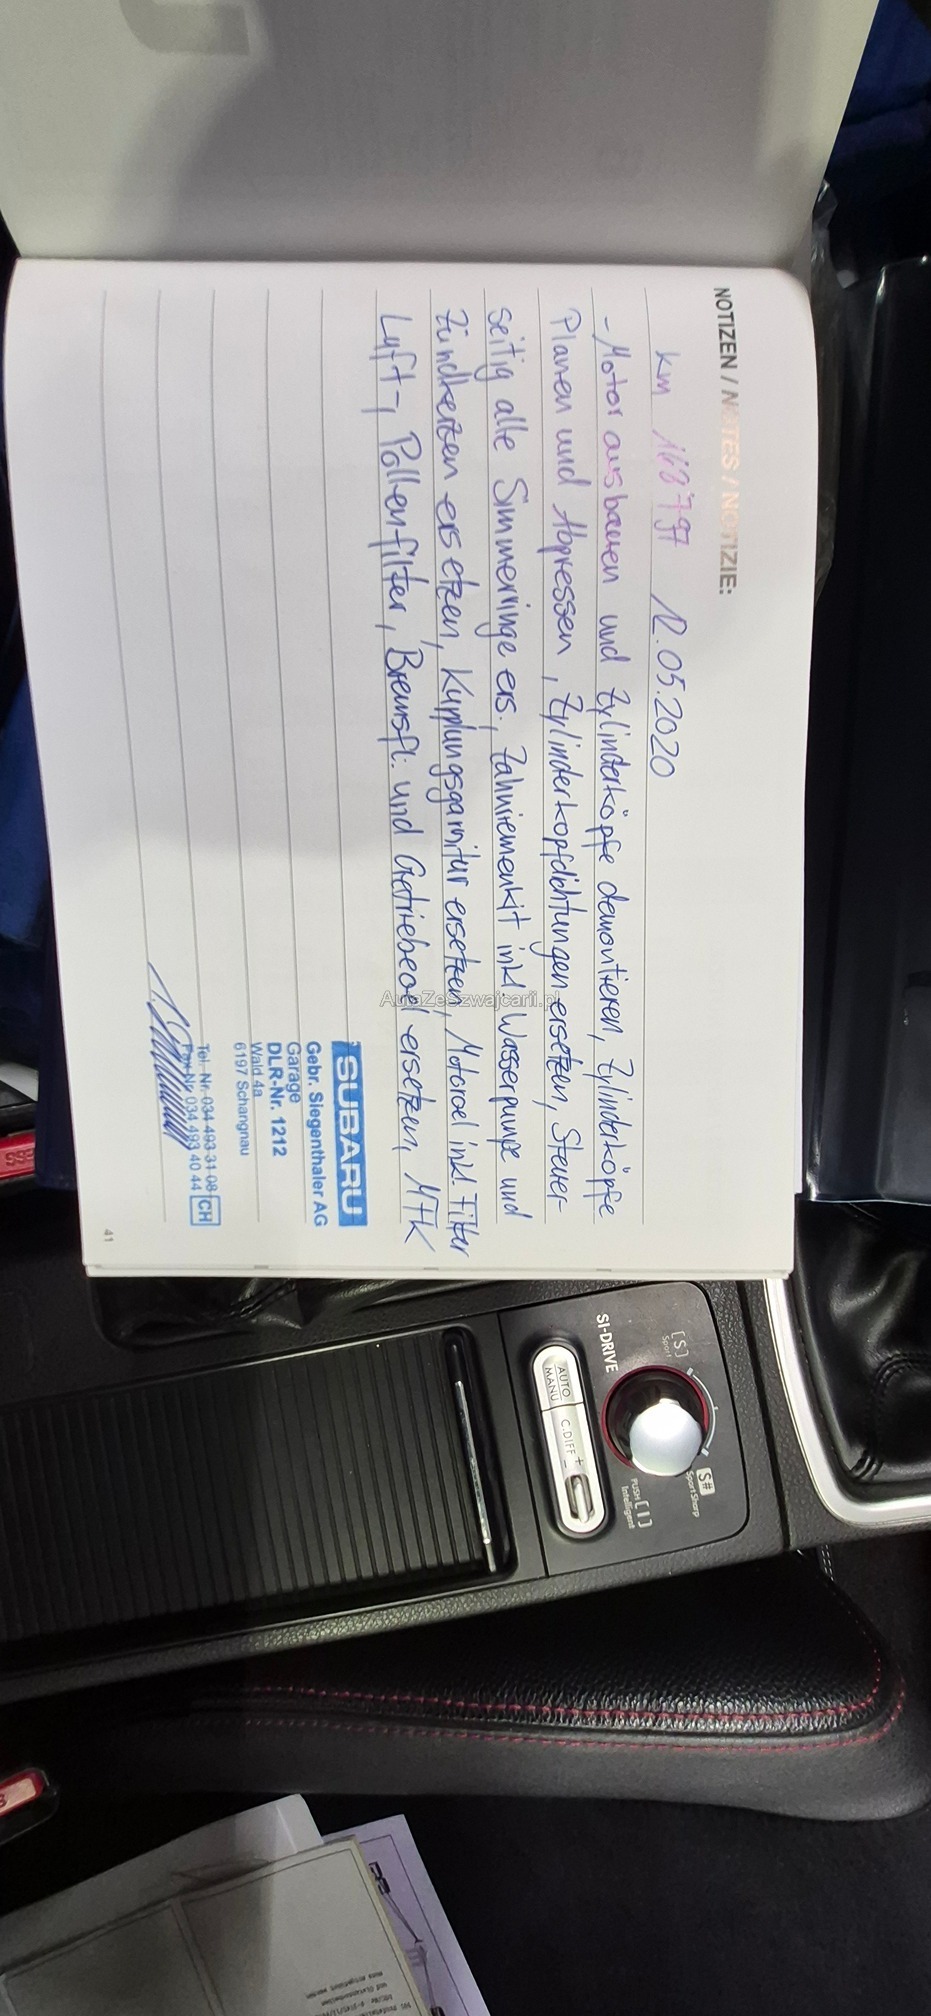 NOTIZEN / NOTES / NOTIZIE:
km 148797 12.05.2020
- Motor ausbauen und Zylinderköpfe demontieren, Zylinderköpfe
Planen und Abpressen, Zylinderkopfdichtungen ersetzen, Steuer-
seitig alle Simmerringe ers., Zahnriemenkit inkl Wasserpumpe und
Zündkerzen ersetzen, Kupplungsgarnitur ersetzen, Motoroel inkl. Filter
Luft-, Pollenfilter, Bremsfl. und Getriebeoel ersetzen, MFK
AutaZeSzwajcarii.pl
SUBARU
Gebr. Siegenthaler AG
Garage
DLR-Nr. 1212
Wald 4a
6197 Schangnau
Tel. Nr. 034 493 31 08
Fax Nr. 034 493 40 44 CH
41
SI-DRIVE
[S]
Sport
S#
Sport Sharp
PUSH [I]
Intelligent
AUTO
MANU
C.DIFF + -